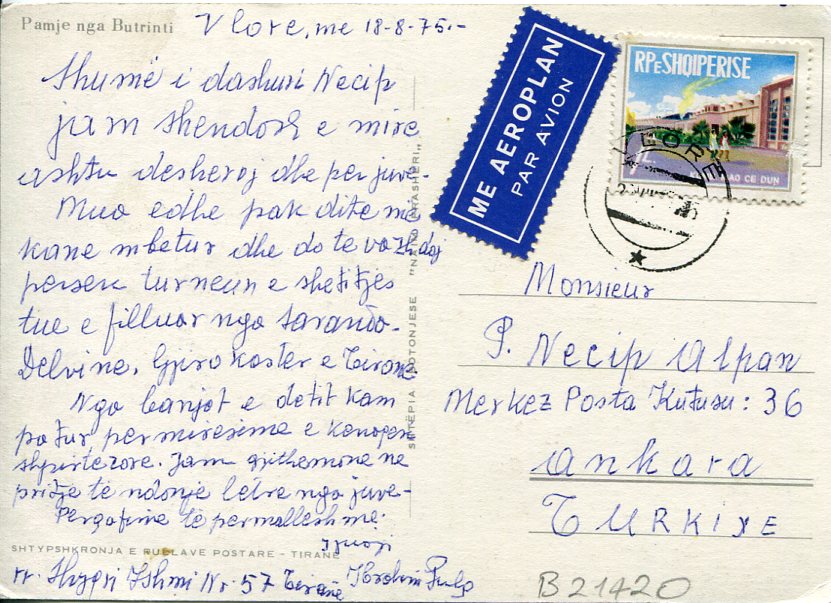 Pamje nga Butrinti
Vlore, me 18-8-75.-
Shumë i dashuri Necip
jam shendosh e mire
ashtu desheroj dhe per juve.
Mua edhe pak dite me
kane mbetur dhe do te vazhdoj
perseri turneun e shetitjes
tue e filluar nga Saranda-
Delvine, Gjirokaster e Tirane.
Nga banjot e detit kam
patur permiresime e kenaqesi
shpirterore. Jam gjithemone ne
pritje te ndonje letre nga juve-
Pergafime te permalleshme.
Juaji
Ibrahim
rr. Hygri Ishmi Nr. 57 Tirane
SHTYPSHKRONJA E RUELAVE POSTARE - TIRANË
SHTËPIA BOTONJESE "NAIM FRASHERI"
ME AEROPLAN
PAR AVION
RPE SHQIPERISE
1L
MAO CE DUN
VLORE
Monsieur
P. Necip Alpan
Merkez Posta Kutusu: 36
Ankara
TURKIYE
B21420